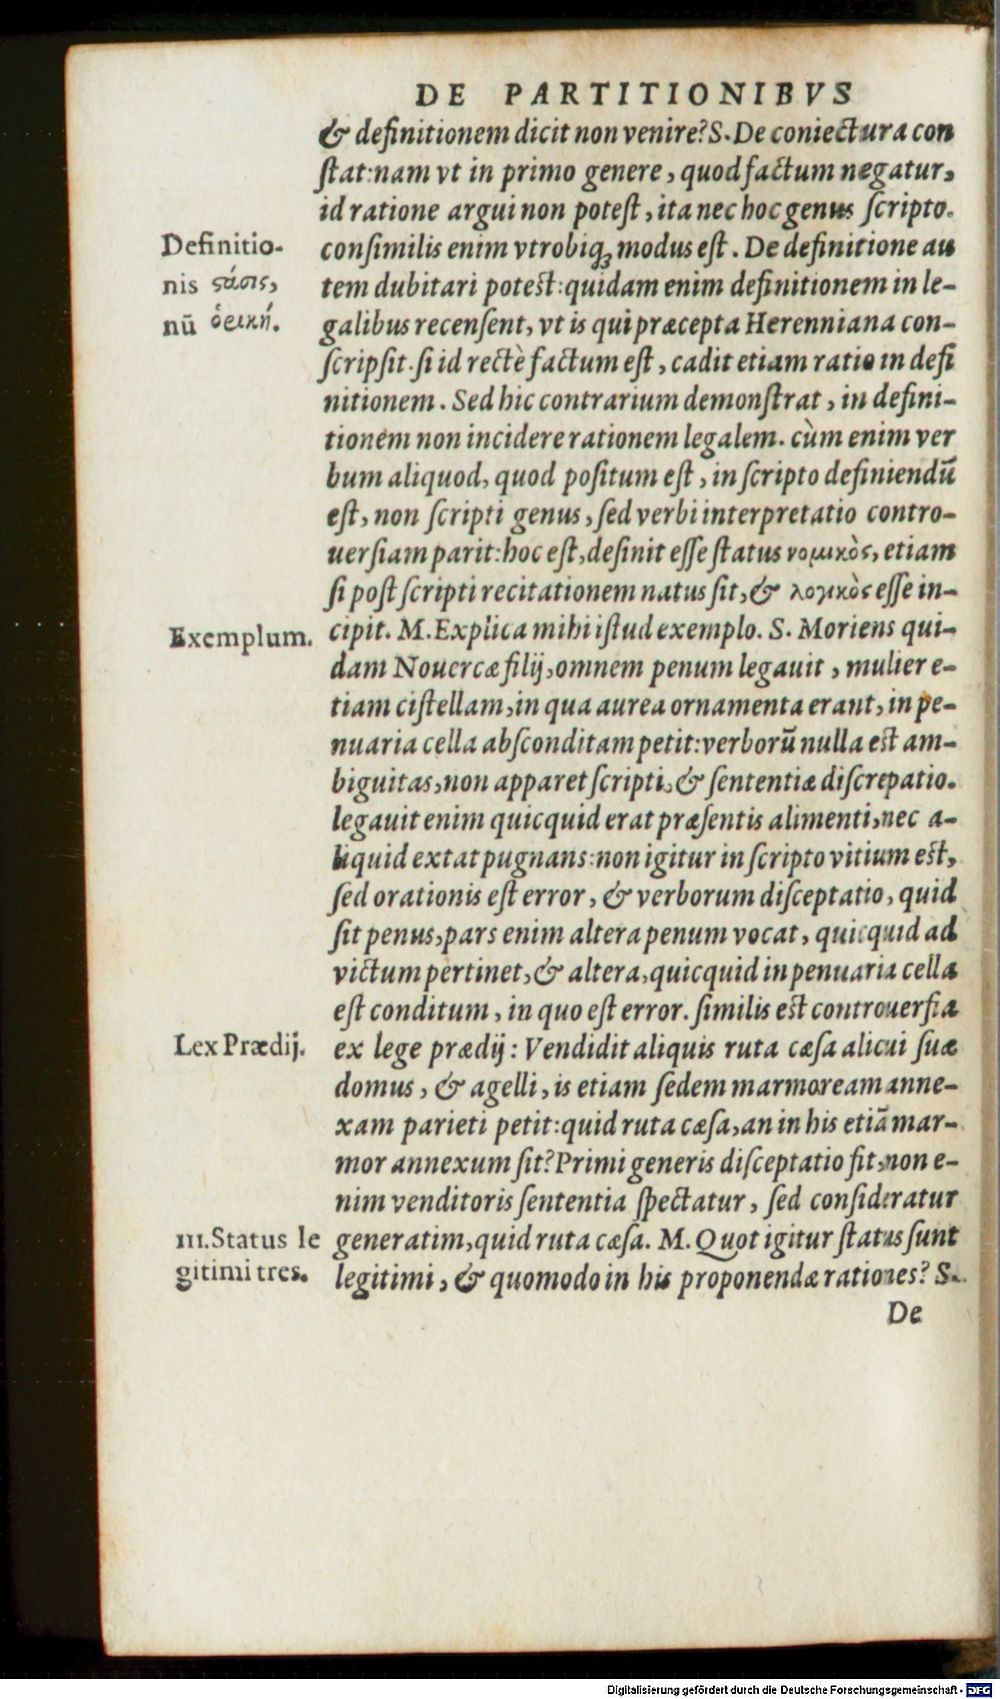 DE PARTITIONIBVS
& definitionem dicit non venire? S. De coniectura con
stat: nam vt in primo genere, quod factum negatur,
id ratione argui non potest, ita nec hoc genus scripto.
Definitio-
consimilis enim vtrobiq; modus est. De definitione au
nis ϛάσις,
tem dubitari potest: quidam enim definitionem in le-
nū ὁρική.
galibus recensent, vt is qui præcepta Herenniana con-
scripsit. si id rectè factum est, cadit etiam ratio in defi
nitionem. Sed hic contrarium demonstrat, in defini-
tionem non incidere rationem legalem. cùm enim ver
bum aliquod, quod positum est, in scripto definiendū
est, non scripti genus, sed verbi interpretatio contro-
uersiam parit: hoc est, desinit esse status νομικὸς, etiam
si post scripti recitationem natus sit, & λογικὸς esse in-
Exemplum.
cipit. M. Explica mihi istud exemplo. S. Moriens qui-
dam Nouercæ filij, omnem penum legauit, mulier e-
tiam cistellam, in qua aurea ornamenta erant, in pe-
nuaria cella absconditam petit: verborū nulla est am-
biguitas, non apparet scripti, & sententiæ discrepatio.
legauit enim quicquid erat præsentis alimenti, nec a-
liquid extat pugnans: non igitur in scripto vitium est,
sed orationis est error, & verborum disceptatio, quid
sit penus, pars enim altera penum vocat, quicquid ad
victum pertinet, & altera, quicquid in penuaria cella
est conditum, in quo est error. similis est controuersia
Lex Prædij.
ex lege prædij: Vendidit aliquis ruta cæsa alicui suæ
domus, & agelli, is etiam sedem marmoream anne-
xam parieti petit: quid ruta cæsa, an in his etiā mar-
mor annexum sit? Primi generis disceptatio fit, non e-
nim venditoris sententia spectatur, sed consideratur
III. Status le
generatim, quid ruta cæsa. M. Quot igitur status sunt
gitimi tres.
legitimi, & quomodo in his proponendæ rationes? S.
De
Digitalisierung gefördert durch die Deutsche Forschungsgemeinschaft - DFG